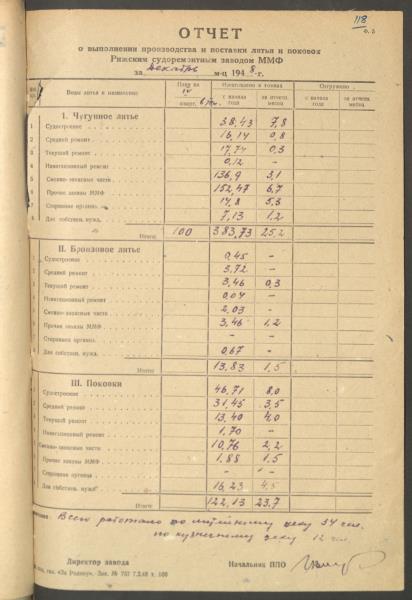 118
ОТЧЕТ
о выполнении производства и поставки литья и поковок
Рижским судоремонтным заводом ММФ
за декабрь м-ц 1948 г.
Виды литья и назначение План на IV кварт. 6 тн. Изготовлено в тоннах Отгружено
с начала года за отчетн. месяц с начала года за отчетн. месяц
I. Чугунное литье
1 Судостроение 38,43 7,8
2 Средний ремонт 16,14 0,8
3 Текущий ремонт 17,74 0,3
4 Навигационный ремонт 0,12 -
5 Сменно-запасные части 136,9 3,1
6 Прочие заказы ММФ 152,47 6,7
7 Сторонние организ. 14,8 5,3
8 Для собствен. нужд 7,13 1,2
Итого: 100 383,73 25,2
II. Бронзовое литье
Судостроение 0,45 -
Средний ремонт 3,72 -
Текущий ремонт 3,46 0,3
Навигационный ремонт 0,04 -
Сменно-запасные части 2,03 -
Прочие заказы ММФ 3,46 1,2
Сторонние организ. - -
Для собствен. нужд 0,67 -
Итого: 13,83 1,5
III. Поковки
Судостроение 46,71 8,0
Средний ремонт 31,45 3,5
Текущий ремонт 13,40 4,0
Навигационный ремонт 1,70 -
Сменно-запасные части 10,76 2,2
Прочие заказы ММФ 1,88 1,5
Сторонние организ. - -
Для собствен. нужд 16,23 4,5
Итого: 122,13 23,7
Всего работало по литейному цеху 34 чел.
по кузнечному цеху 12 чел.
Директор завода Начальник ППО
тип. «За Родину». Зак. № 757 7.2.48 т. 500